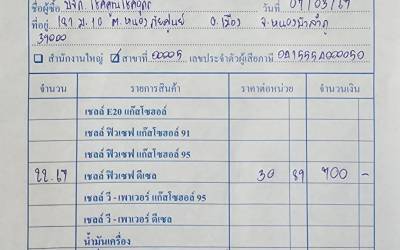 ชื่อผู้ซื้อ บจก. โชคคูณโชคถูกร วันที่ 09/03/69
ที่อยู่ 121 ม.10 ต.หนองภัยศูนย์ อ.เมือง จ.หนองบัวลำภู
39000
สำนักงานใหญ่ ☑ สาขาที่ 00005 เลขประจำตัวผู้เสียภาษี
จำนวน รายการสินค้า ราคาต่อหน่วย จำนวนเงิน
เชลล์ E20 แก๊สโซฮอล์
เชลล์ ฟิวเซฟ แก๊สโซฮอล์ 91
เชลล์ ฟิวเซฟ แก๊สโซฮอล์ 95
22.67 เชลล์ ฟิวเซฟ ดีเซล 30 89 700 -
เชลล์ วี - เพาเวอร์ แก๊สโซฮอล์ 95
เชลล์ วี - เพาเวอร์ ดีเซล
น้ำมันเครื่อง